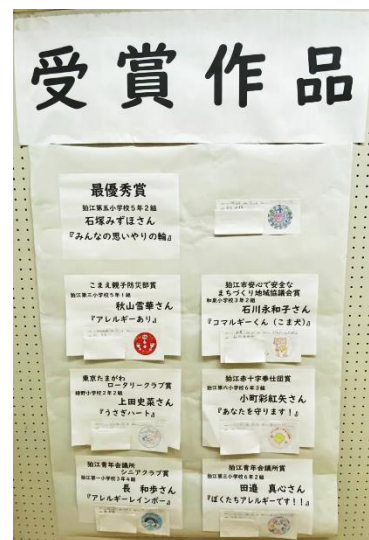 受賞作品
最優秀賞
狛江第五小学校5年2組
石塚みずほさん
『みんなの思いやりの輪』
こまえ親子防災部賞
狛江第三小学校5年1組
秋山雪華さん
『アレルギーあり』
狛江市安心で安全な
まちづくり地域協議会賞
和泉小学校3年2組
石川永和子さん
『コマルギーくん（こま犬）』
東京たまがわ
ロータリークラブ賞
緑野小学校2年2組
上田史菜さん
『うさぎハート』
狛江赤十字奉仕団賞
狛江第六小学校6年3組
小町彩紅矢さん
『あなたを守ります！』
狛江青年会議所
シニアクラブ賞
狛江第一小学校3年4組
長 和歩さん
『アレルギーレインボー』
狛江青年会議所賞
狛江第三小学校6年2組
田邉 真心さん
『ぼくたちアレルギーです！！』